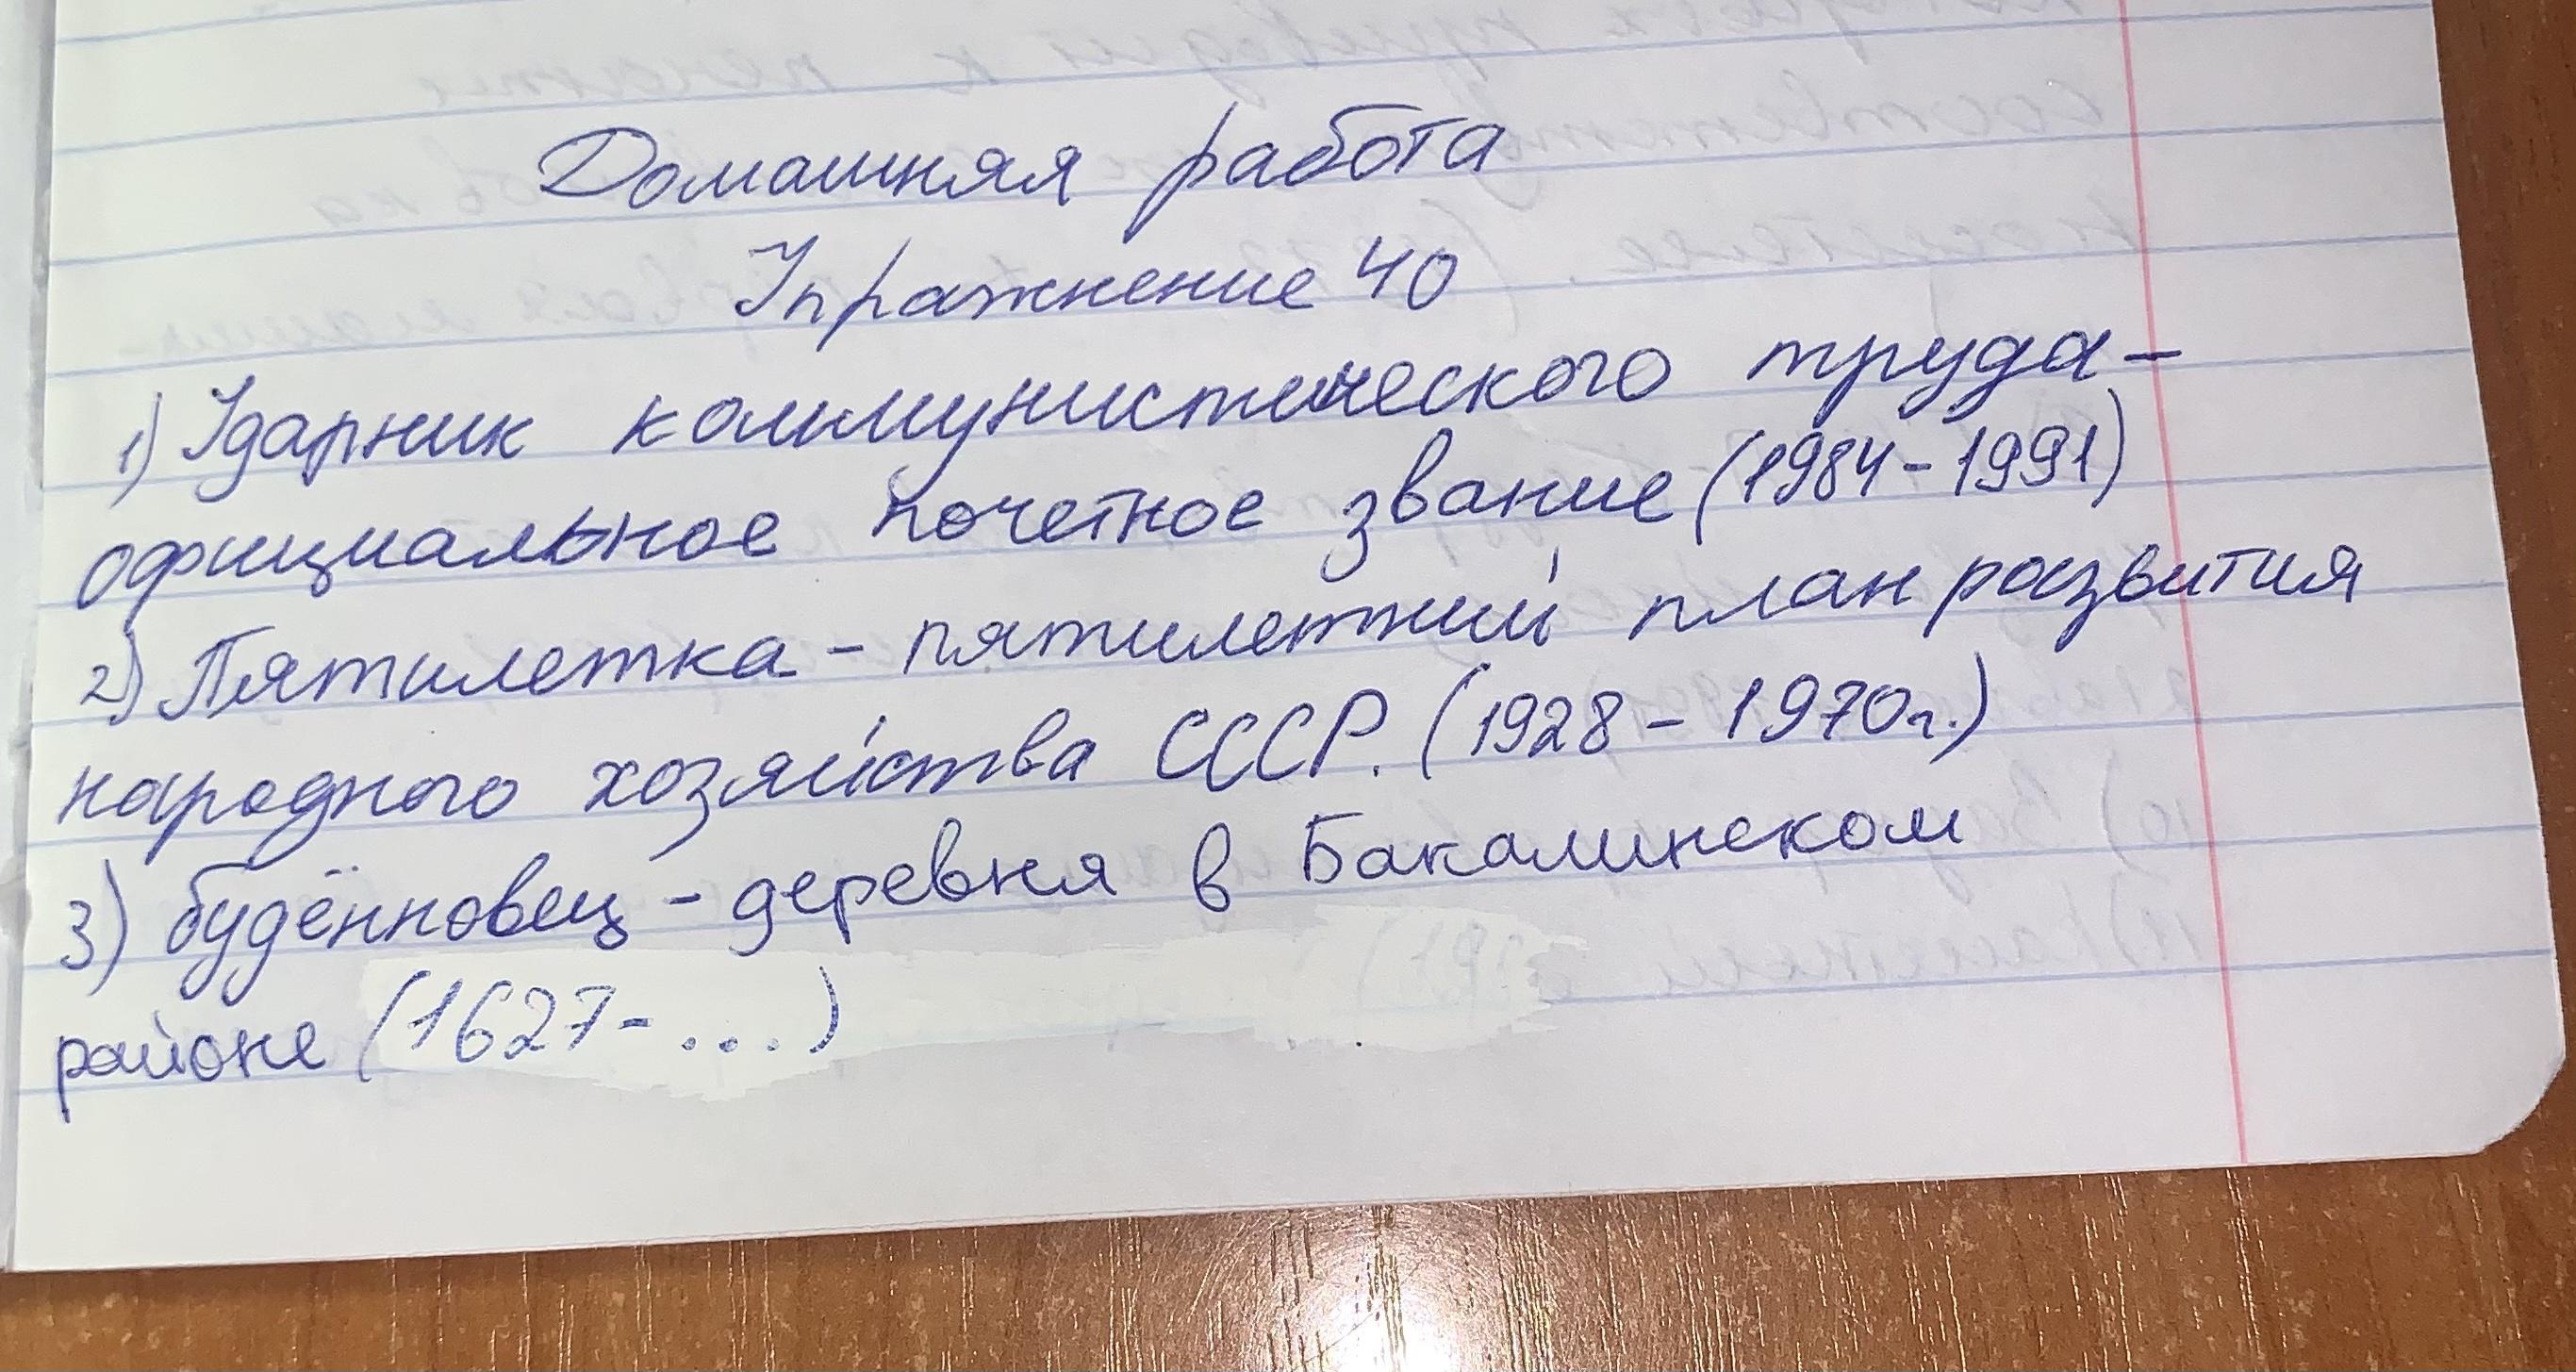 Домашняя работа
Упражнение 40
1) Ударник коммунистического труда –
официальное почетное звание (1984 - 1991)
2) Пятилетка - пятилетний план развития
народного хозяйства СССР. (1928 - 1970г.)
3) будённовец - деревня в Бакалинском
районе (1627- ...)